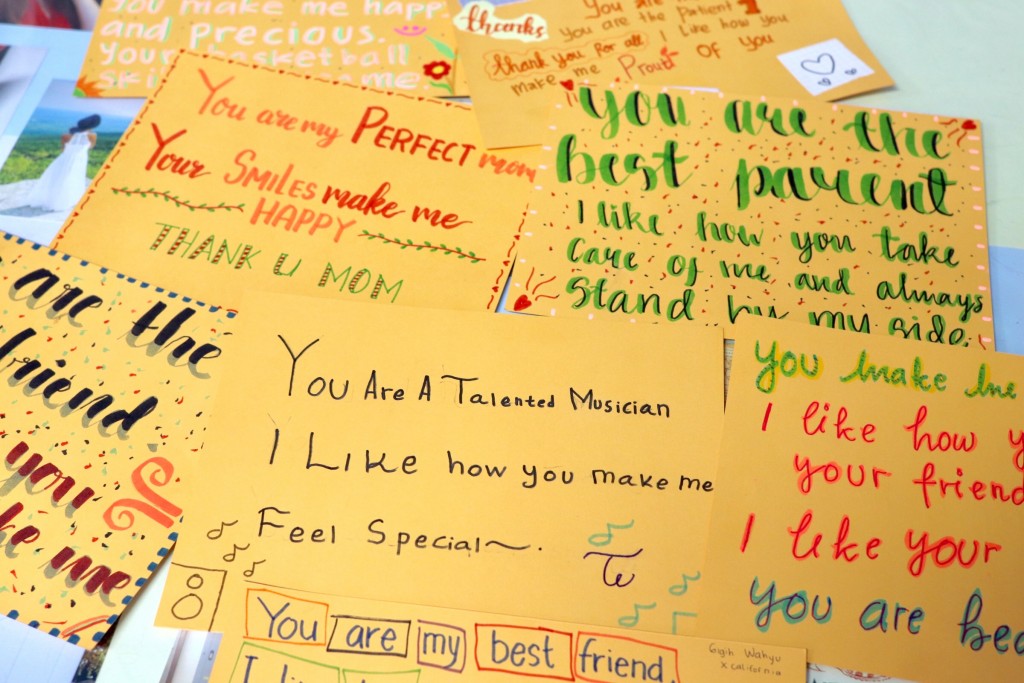 you make me happ
and precious.
your basketball
me
thanks
You are
you are the Patient
thank you for all I like how you
make me Proud of you
You are my PERFECT mom
Your SMILES make me
HAPPY
THANK U MOM
you are the
best parent
I like how you take
care of me and always
stand by my side.
are the
friend
you
me
You Are A Talented Musician
I Like how you make me
Feel Special~.
you make me
I like how y
your friend
I like your
you are bea
You are my best friend.
Gigih Wahyu
x california